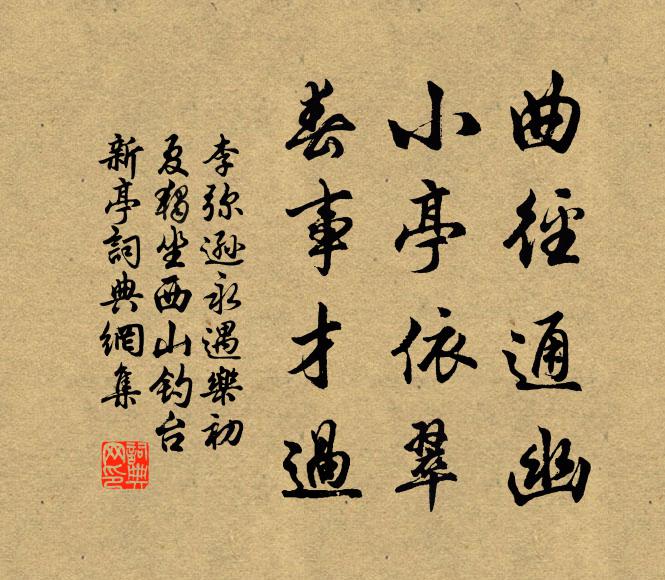 曲徑通幽
小亭依翠
春事才過
李弥遜永遇樂初
夏獨坐西山钓台
新亭詞典網集
詞典
网印